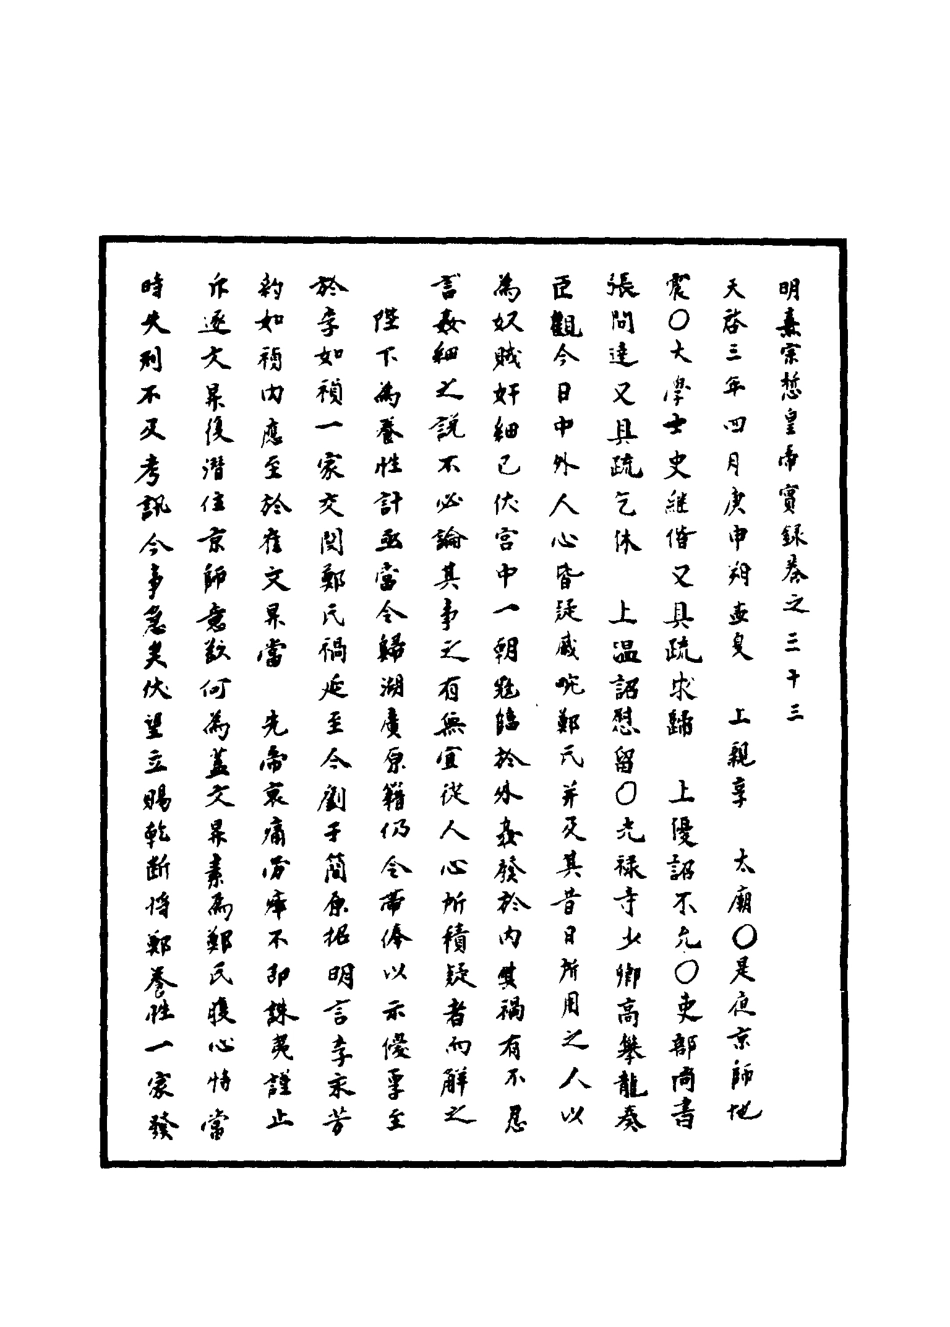 明熹宗悊皇帝實録卷之三十三
天啓三年四月庚申朔孟夏　上親享　太廟○是夜京師地
震○大學士史継偕又具疏求歸　上優詔不允○吏部尚書
張問達又具疏乞休　上温詔慰留○光禄寺少卿高攀龍奏
臣觀今日中外人心皆疑戚畹鄭氏并及其昔日所用之人以
為奴賊奸細已伏宮中一朝臨於外姦發於内其禍有不忍
言姦細之説不必論其事之有無宜従人心所積疑者而解之
陛下為養性計亟當令歸湖廣原籍仍令帶俸以示優厚至
於李如禎一家交関鄭氏禍延至今劉于簡原招明言李永芳
約如禎内應至於崔文昇當　先帝哀痛勞瘁不即誅夷謹止
斥逐文昇復潜住京師意欲何為盖文昇素為鄭氏腹心特當
時失刑不及考訊今事急矣伏望立賜乾断将鄭養性一家發